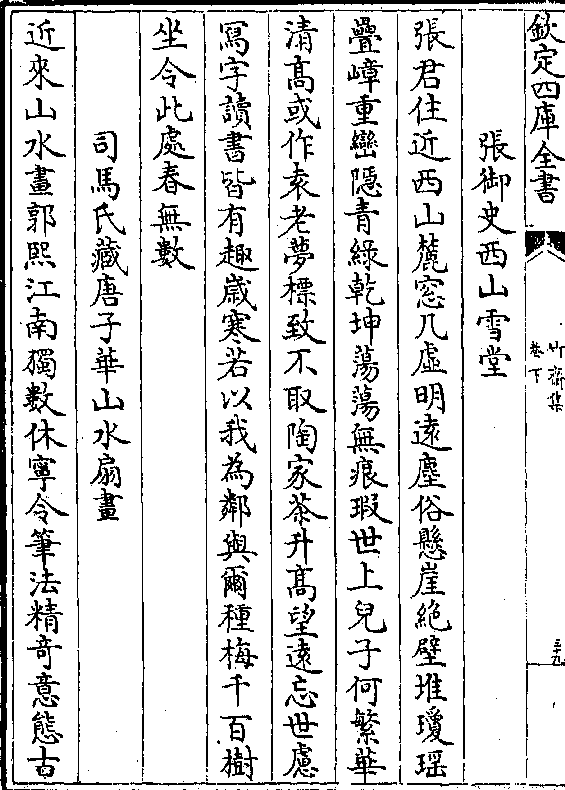 欽定四庫全書
竹齋集
卷下
三九
張御史西山雪堂
張君住近西山麓窓几虛明遠塵俗懸崖絶壁堆瓊瑶
疊嶂重巒隱青綠乾坤蕩蕩無痕瑕世上兒子何繁華
清髙或作袁老夢標致不取陶家茶升髙望遠忘世慮
冩字讀書皆有趣嵗寒若以我為鄰與爾種梅千百樹
坐令此處春無數
司馬氏藏唐子華山水扇畫
近來山水畫郭熙江南獨數休寧令筆法精竒意態古